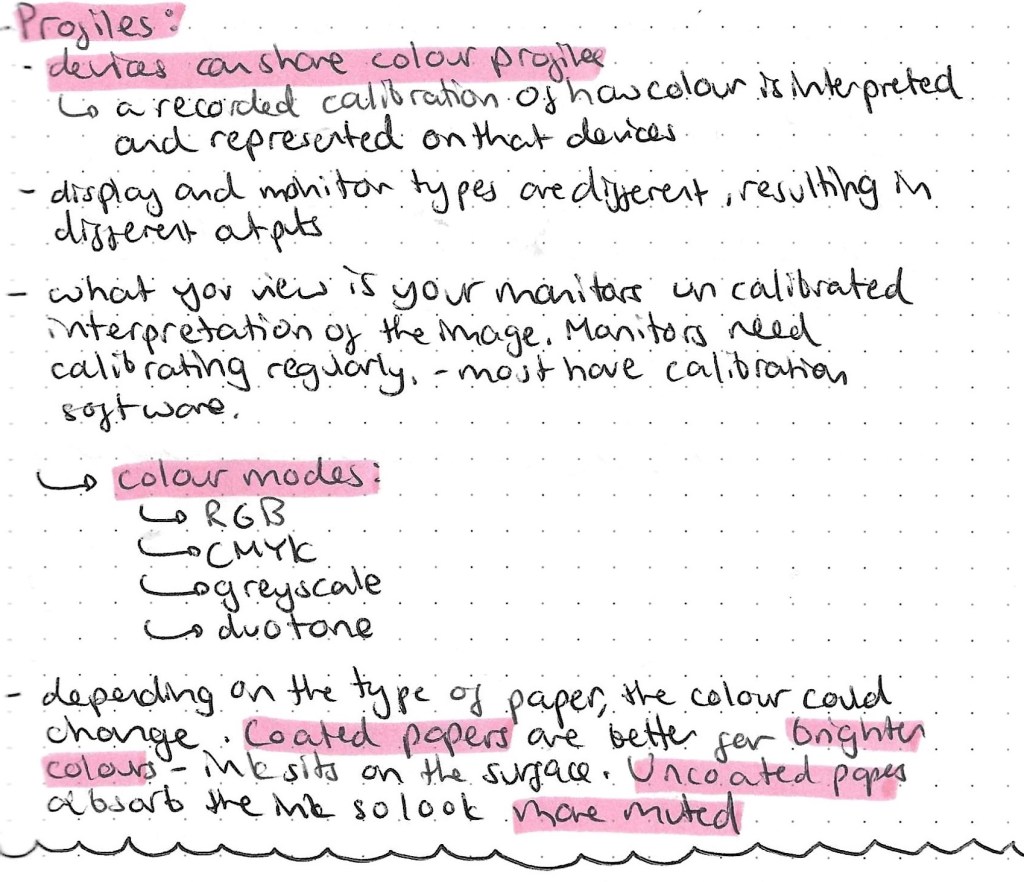 - Profiles:
- devices can share colour profiles
↳ a recorded calibration of how colour is interpreted
and represented on that devices
- display and monitor types are different, resulting in
different outputs
- what you view is your monitors uncalibrated
interpretation of the image. Monitors need
calibrating regularly. - most have calibration
software.
↳ colour modes:
↳ RGB
↳ CMYK
↳ greyscale
↳ duotone
- depending on the type of paper, the colour could
change. Coated papers are better for brighter
colours - ink sits on the surface. Uncoated papes
absorb the ink so look more muted